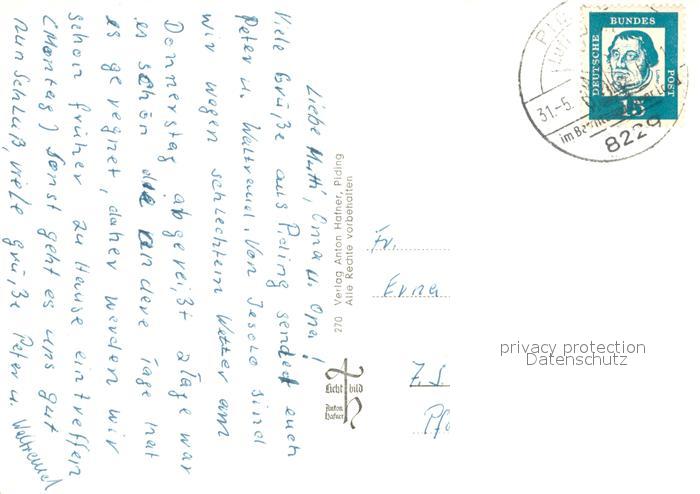 Liebe Mutti, Oma u. Opa!
Viele Grüße aus Piding sendet euch
Peter u. Waltraud. Von Jesolo sind
wir wegen schlechtem Wetter am
Donnerstag abgereißt 2 Tage war
es schön die andere Tage hat
es geregnet, daher werden wir
schon früher zu Hause eintreffen
(Montag) Sonst geht es uns gut
nun Schluß, viele grüße Peter u. Waltraud
270 Verlag Anton Hafner, Piding
Alle Rechte vorbehalten
Licht bild
Anton
Hafner
Fr.
Erna
DEUTSCHE BUNDES POST
Luther
15
31.-5.
im Be
8229
privacy protection
Datenschutz